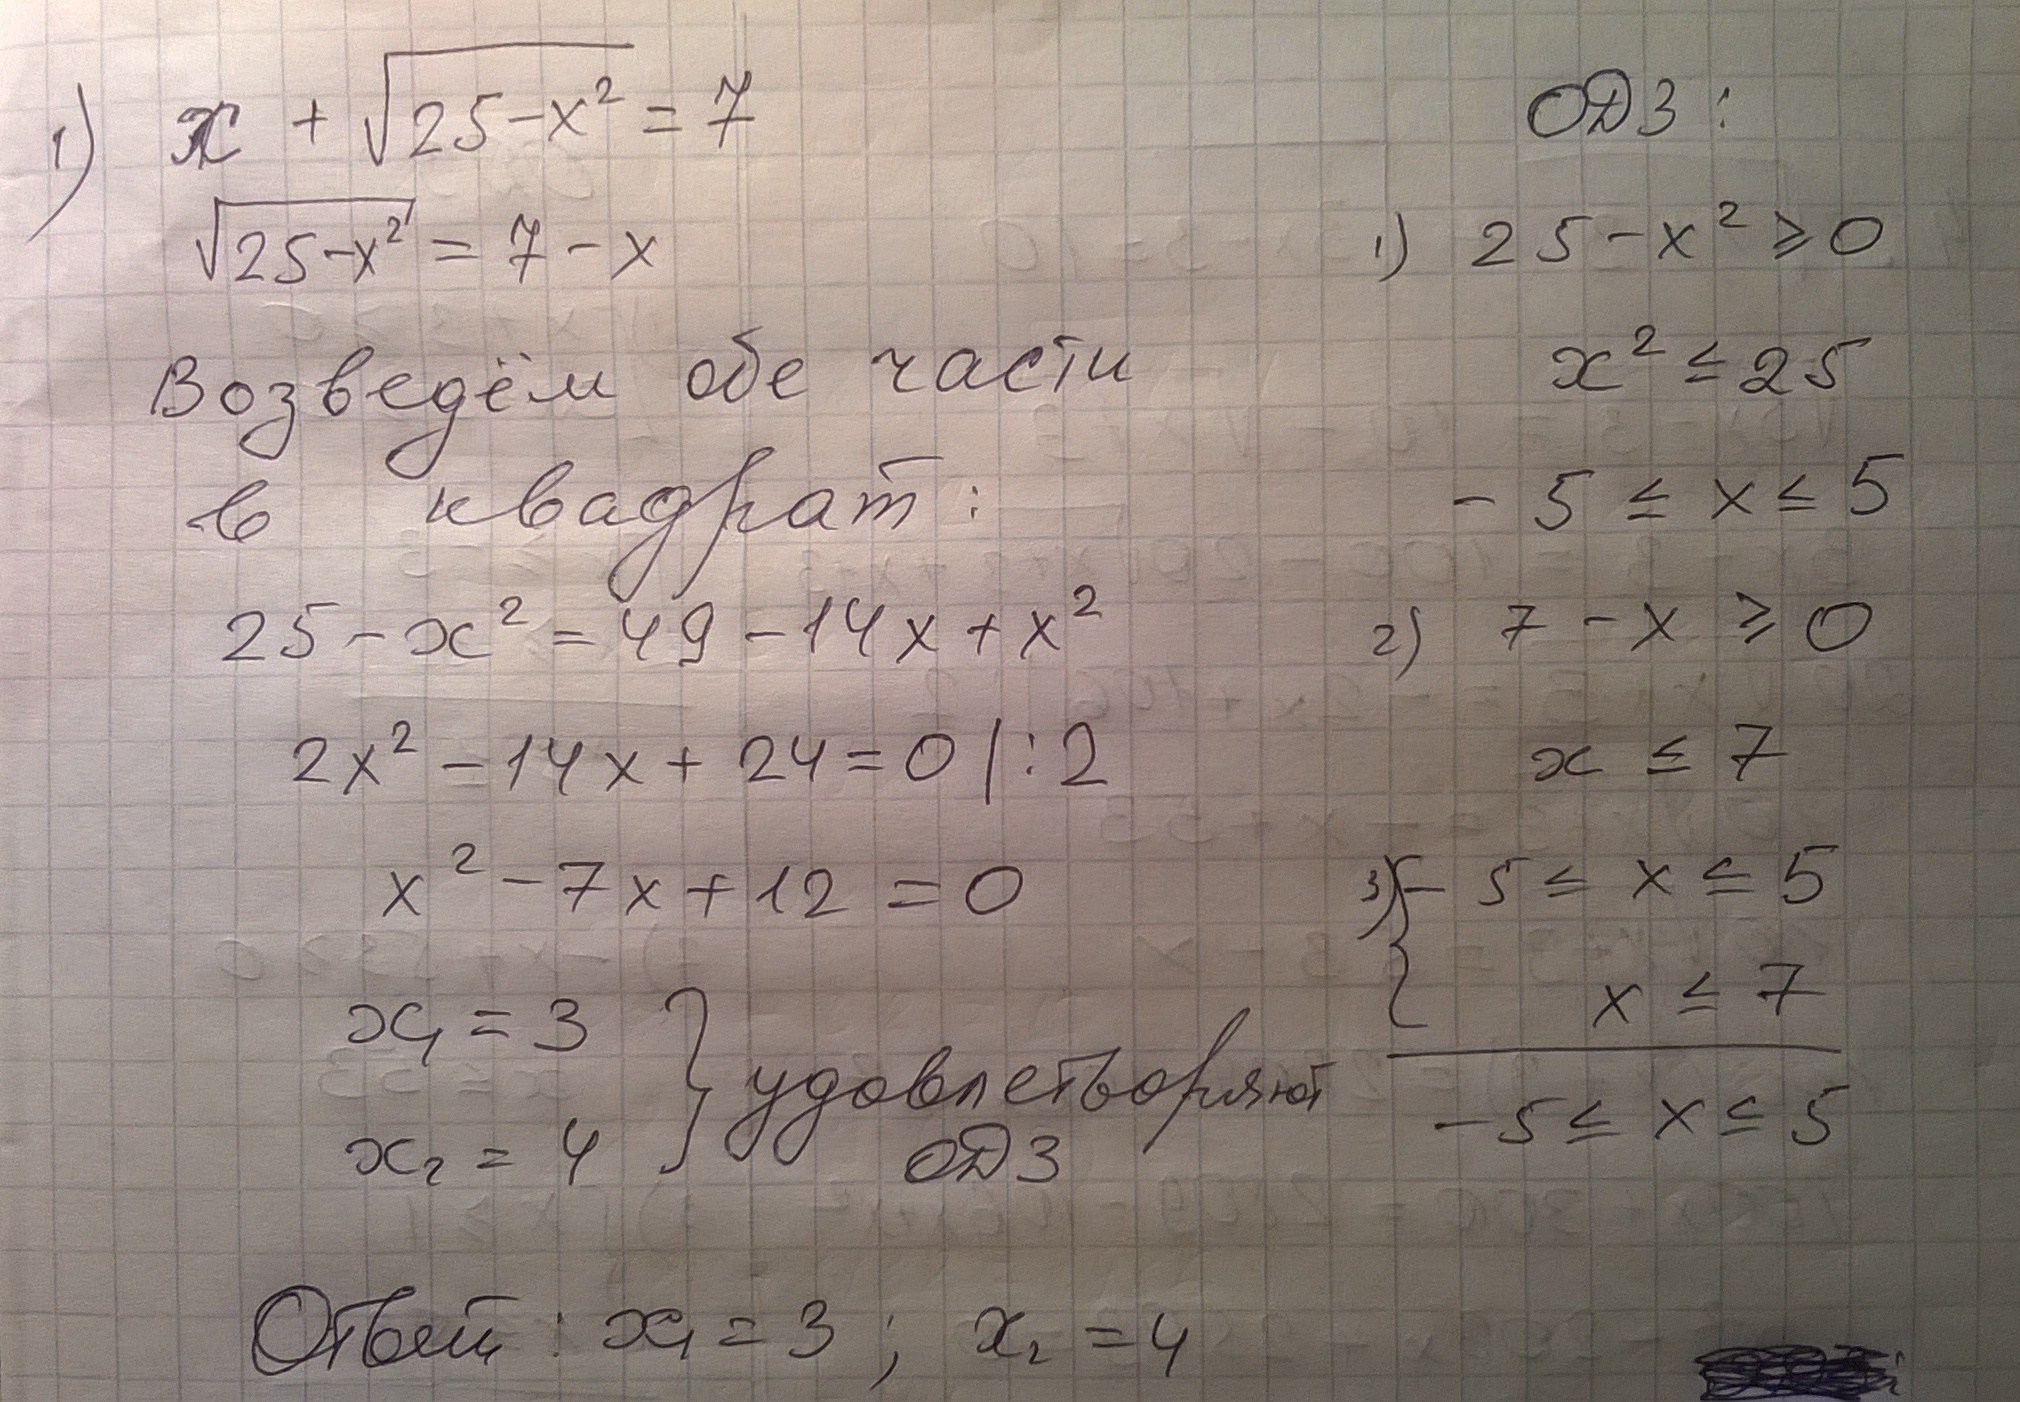 1) x + √25-x² = 7
√25-x² = 7 - x
Возведём обе части
в квадрат:
25 - x² = 49 - 14x + x²
2x² - 14x + 24 = 0 | : 2
x² - 7x + 12 = 0
x₁ = 3
x₂ = 4
} удовлетворяют
ОДЗ
Ответ: x₁ = 3 ; x₂ = 4
ОДЗ :
1) 25 - x² ⩾ 0
x² ≤ 25
- 5 ≤ x ≤ 5
2) 7 - x ⩾ 0
x ≤ 7
3) { - 5 ≤ x ≤ 5
x ≤ 7
- 5 ≤ x ≤ 5